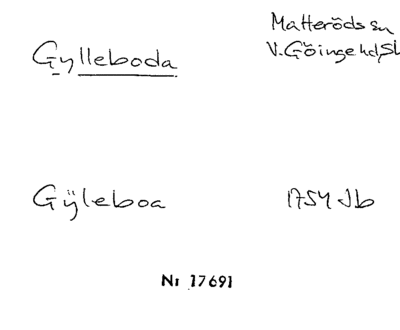 Gylleboda
Matteröds sn
V. Göinge hd, Sk
Gÿleboa
1754 Jb
Nr 17691